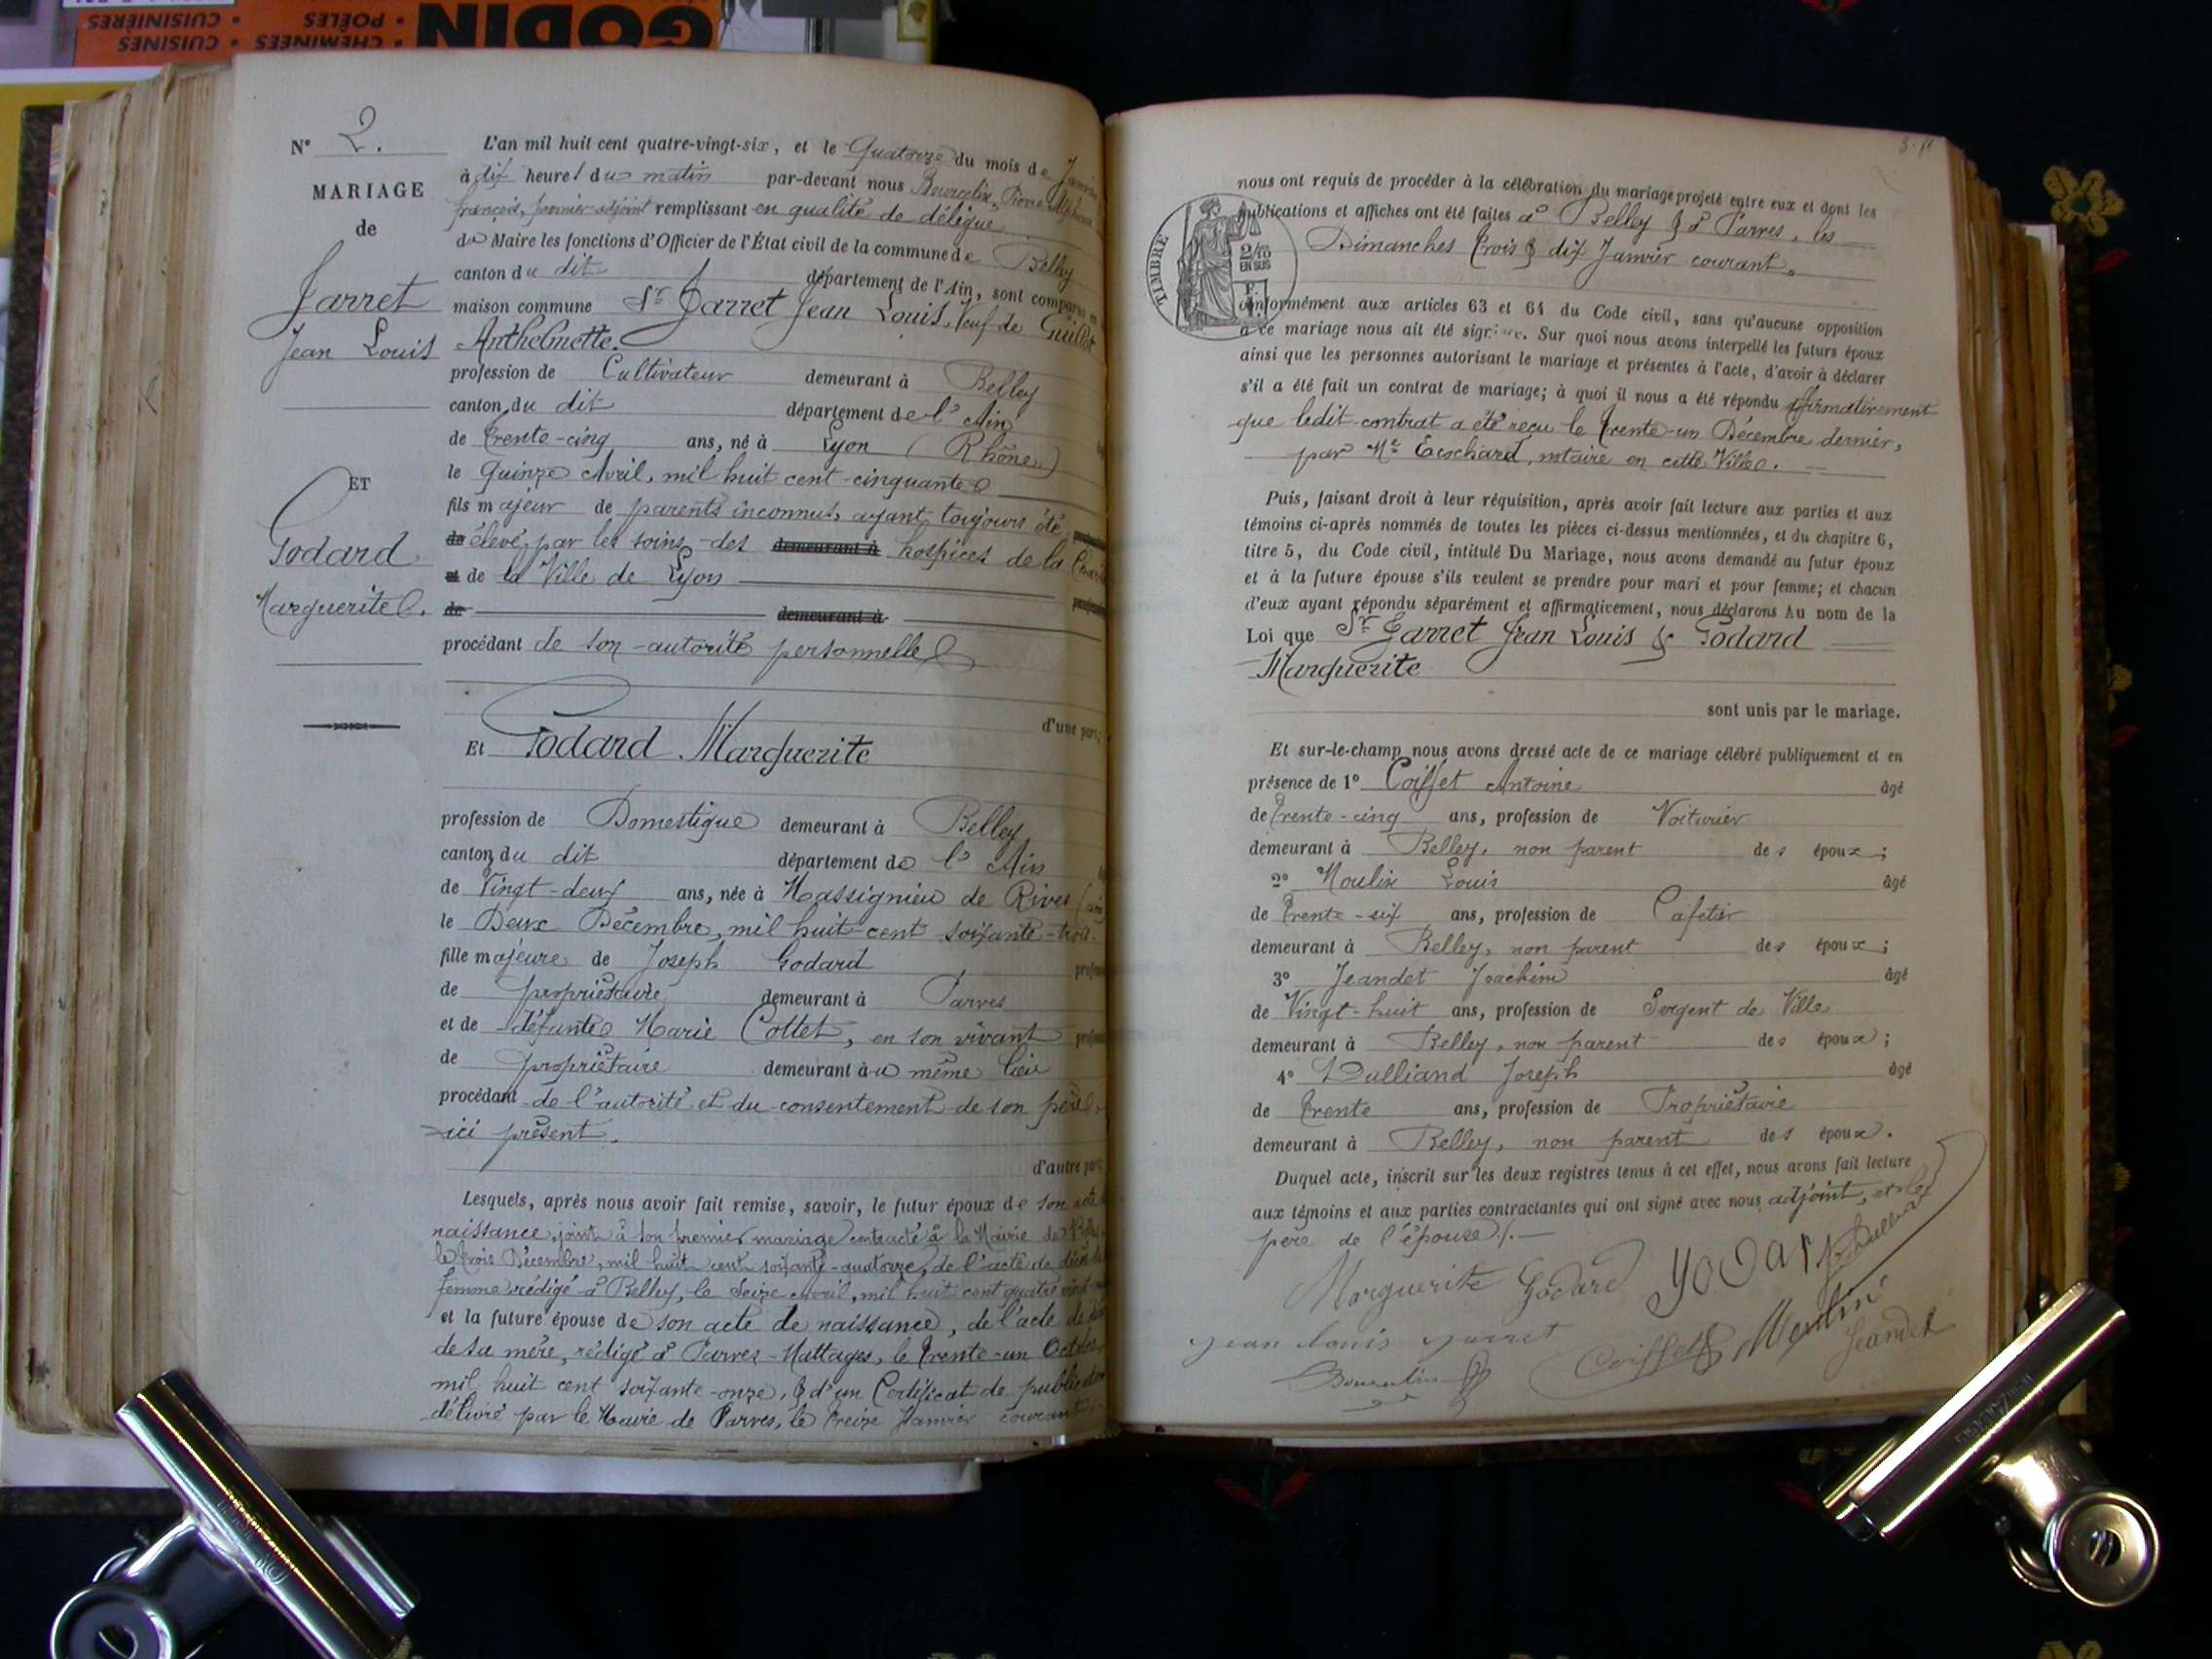 GODIN
CHEMINÉES • POÊLES •
CUISINES • CUISINIÈRES
N° 2.
MARIAGE
de
Jarret
Jean Louis
ET
Godard
Marguerite.
L'an mil huit cent quatre-vingt-six, et le Quatorze du mois de Janvier
à dix heures du matin par-devant nous Bourcelin, Pierre
françois, premier adjoint remplissant en qualité de délégué
du Maire les fonctions d'Officier de l'État civil de la commune de Belley
canton du dit département de l'Ain, sont comparus en
maison commune Sr Jarret Jean Louis, Veuf de Guillot
Anthelmette.
profession de Cultivateur demeurant à Belley
canton du dit département de l'Ain
de trente-cinq ans, né à Lyon (Rhône)
le quinze Avril, mil huit cent-cinquante
fils majeur de parents inconnus, ayant toujours été
de élevé par les soins des demeurant à hospices de la
et de la Ville de Lyon
de demeurant à
procédant de son autorité personnelle
d'une part;
Et Godard Marguerite
profession de Domestique demeurant à Belley
canton du dit département de l'Ain
de Vingt-deux ans, née à Massignieu de Rives
le Deux Décembre, mil huit-cent soixante-trois
fille majeure de Joseph Godard
de propriétaire demeurant à Parves
et de défunte Marie Cottet, en son vivant
de propriétaire demeurant au même lieu
procédant de l'autorité et du consentement de son père
ici présent.
d'autre part
Lesquels, après nous avoir fait remise, savoir, le futur époux de son acte
naissance, joint à son premier mariage contracté à la Mairie de Belley
le trois Décembre, mil huit cent soixante-quatorze, de l'acte de décès
femme rédigé à Belley, le Seize Avril, mil huit cent quatre vingt
et la future épouse de son acte de naissance, de l'acte de
de sa mère, rédigé à Parves-Nattages, le trente-un Octobre
mil huit cent soixante-onze, & d'un Certificat de publication
délivré par le Mairie de Parves, le treize Janvier courant
TIMBRE
2/10
EN SUS
nous ont requis de procéder à la célébration du mariage projeté entre eux et dont les
publications et affiches ont été faites à Belley & à Parves, les
Dimanches trois & dix Janvier courant.
conformément aux articles 63 et 64 du Code civil, sans qu'aucune opposition
à ce mariage nous ait été signifiée. Sur quoi nous avons interpellé les futurs époux
ainsi que les personnes autorisant le mariage et présentes à l'acte, d'avoir à déclarer
s'il a été fait un contrat de mariage; à quoi il nous a été répondu affirmativement
que ledit contrat a été reçu le trente-un Décembre dernier,
par Me Escochard, notaire en cette Ville.
Puis, faisant droit à leur réquisition, après avoir fait lecture aux parties et aux
témoins ci-après nommés de toutes les pièces ci-dessus mentionnées, et du chapitre 6,
titre 5, du Code civil, intitulé Du Mariage, nous avons demandé au futur époux
et à la future épouse s'ils veulent se prendre pour mari et pour femme; et chacun
d'eux ayant répondu séparément et affirmativement, nous déclarons Au nom de la
Loi que Sr Jarret Jean Louis & Godard
Marguerite
sont unis par le mariage.
Et sur-le-champ nous avons dressé acte de ce mariage célébré publiquement et en
présence de 1° Coiffet Antoine âgé
de trente-cinq ans, profession de Voiturier
demeurant à Belley, non parent des époux;
2° Moulin Louis âgé
de trente-six ans, profession de Cafetier
demeurant à Belley, non parent des époux;
3° Jeandet Joachim âgé
de Vingt-huit ans, profession de Sergent de Ville
demeurant à Belley, non parent des époux;
4° Dulliand Joseph âgé
de trente ans, profession de Propriétaire
demeurant à Belley, non parent des époux.
Duquel acte, inscrit sur les deux registres tenus à cet effet, nous avons fait lecture
aux témoins et aux parties contractantes qui ont signé avec nous adjoint, et le
père de l'épouse./.
Marguerite Godard Godar Dulliand
jean louis jarret Coiffet Moulin Jeandet